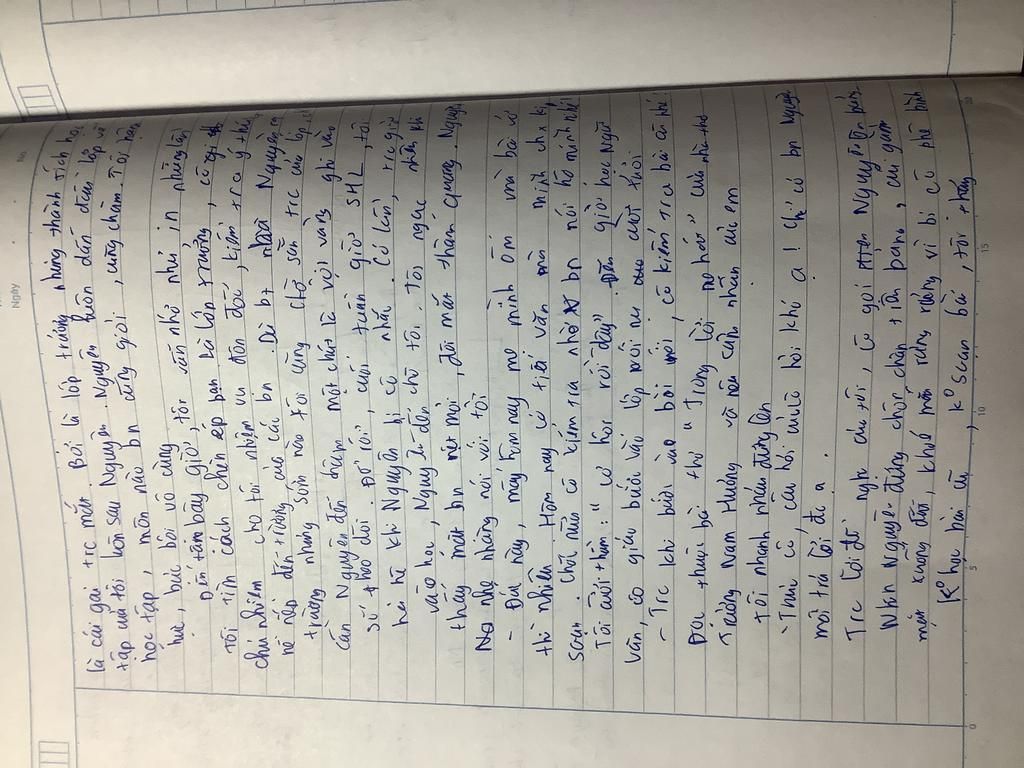 là cái gai trc mắt. Bởi là lớp trưởng nhưng thành tích học
tập của tôi kém sau Nguyên. Nguyên luôn dẫn đầu lớp về
học tập, môn nào bn cũng giỏi, cũng chăm. Tôi bực
tức, bực bội vô cùng
Đến tâm bây giờ, tôi vẫn nhớ như in những lần
tôi tìm cách chèn ép bạn. Là lớp trưởng, cô giáo
chủ nhiệm cho tôi nhiệm vụ đôn đốc, kiểm tra ý thức
nề nếp đến trường của các bn. Dù bt nhà Nguyên xa
trường nhưng sớm nào tôi cũng chờ sẵn trc cửa lớp
Cần Nguyên đến chậm một chút là vội vàng ghi vào
sổ theo dõi. Để rồi, cuối tuần giờ SHL, tôi
hả hê khi Nguyên bị cô nhắc. Có lần, trc giờ
vào học, Nguyên đến chỗ tôi. Tôi ngạc nhiên khi
thấy mắt bn mệt mỏi, đôi mắt thâm quầng. Nguyên
nhẹ nhàng nói với tôi
- Đợt này, mấy hôm nay mẹ mình ốm mà bà cô
thì nhiều. Hôm nay có tiết văn mình ch x kị
soạn. Chút nữa cô kiểm tra nhờ bn nói hộ mình nhé!
Tôi cười thầm: " cơ hội rồi đây" Đến giờ học Ngữ
Văn, cô giáo bước vào lớp nở nụ cười tươi
- Trc khi bước vào bài mới, cô kiểm tra bài cũ nhé!
Đọc thuộc bài thơ " Trong lời mẹ hát" của nhà thơ
Trương Nam Hương và nêu cảm nhận của em
Tôi nhanh nhảu đứng lên
- Thưa cô, câu hỏi của cô hơi khó ạ! Chỉ có bn Nguyên
mới trả lời đc ạ
Trc lời đề nghị của tôi, cô gọi Nguyên lên bảng.
Nhìn Nguyên đứng chôn chân trên bảng, cúi gằm
mặt xuống đất, khổ mặt rưng rưng vì bị cô phê bình
K° học bài cũ, k° soạn bài, tôi thấy